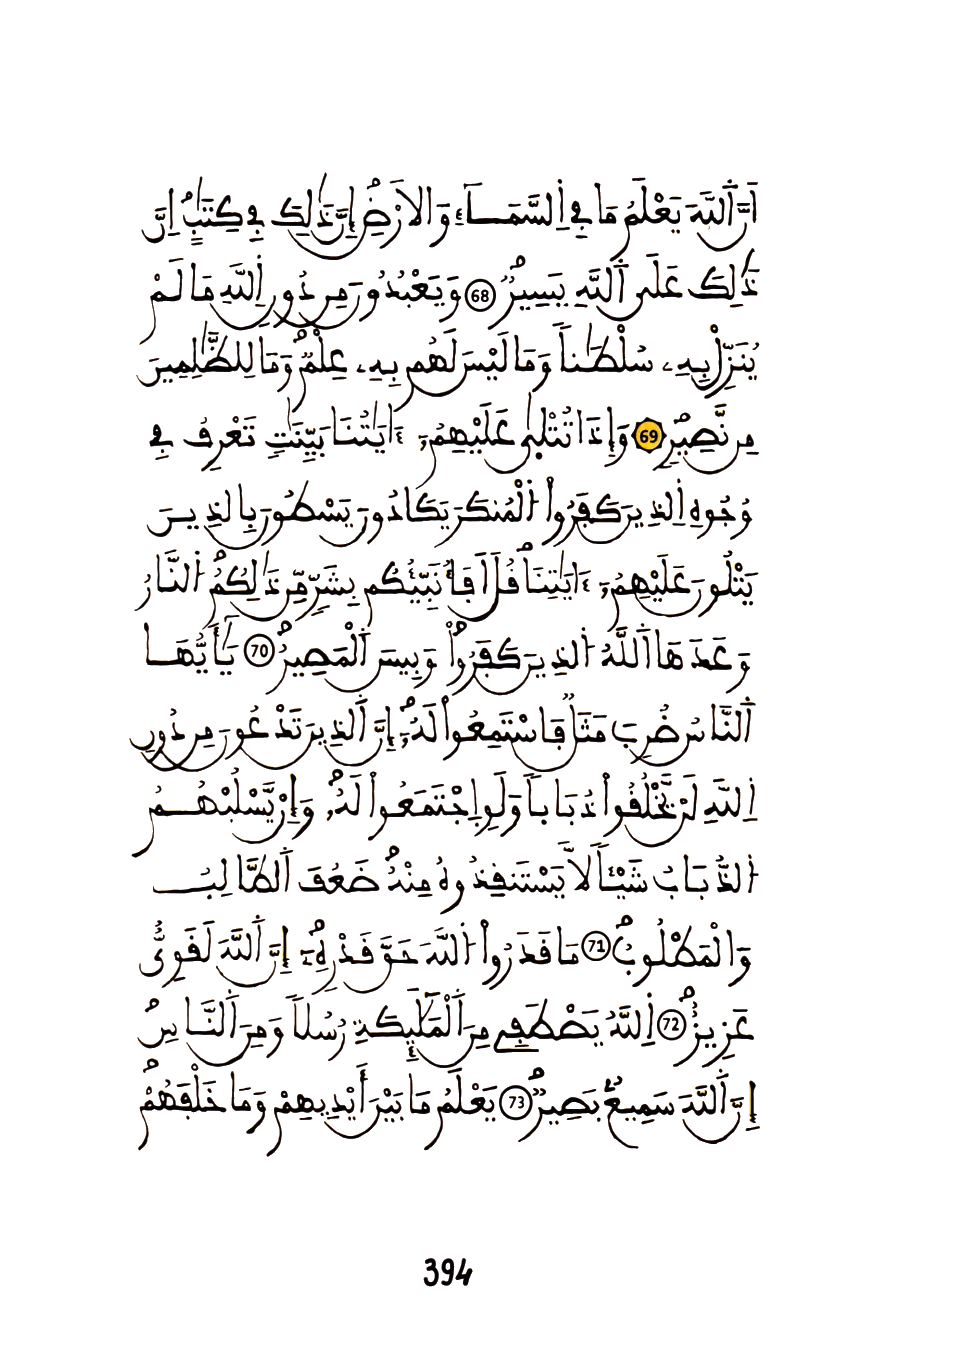 أَنَّ اَ۬للَّهَ يَعْلَمُ مَا فِے اِ۬لسَّمَآءِ وَالَارْضِۖ إِنَّ ذَٰلِكَ فِے كِتَٰبٍۖ اِنَّ
ذَٰلِكَ عَلَي اَ۬للَّهِ يَسِيرٞۖ 68 وَيَعْبُدُونَ مِن دُونِ اِ۬للَّهِ مَا لَمْ
يُنَزِّلْ بِهِۦ سُلْطَٰناٗ وَمَا لَيْسَ لَهُم بِهِۦ عِلْمٞۖ وَمَا لِلظَّٰلِمِينَ
مِن نَّصِيرٖۖ 69 وَإِذَا تُتْل۪ىٰ عَلَيْهِمُۥٓ ءَايَٰتُنَا بَيِّنَٰتٖ تَعْرِفُ فِے
وُجُوهِ اِ۬لذِينَ كَفَرُواْ اُ۬لْمُنكَرَ يَكَادُونَ يَسْطُونَ بِالذِينَ
يَتْلُونَ عَلَيْهِمُۥٓ ءَايَٰتِنَاۖ قُلَ اَفَأُنَبِّئُكُم بِشَرّٖ مِّن ذَٰلِكُمُۖ اُ۬لنَّارُ
وَعَدَهَا اَ۬للَّهُ اُ۬لذِينَ كَفَرُواْۖ وَبِيسَ اَ۬لْمَصِيرُۖ 70 يَٰٓأَيُّهَا
اَ۬لنَّاسُ ضُرِبَ مَثَلٞ فَاسْتَمِعُواْ لَهُۥٓۖ إِنَّ اَ۬لذِينَ تَدْعُونَ مِن دُونِ
اِ۬للَّهِ لَنْ يَّخْلُقُواْ ذُبَاباٗ وَلَوِ اِ۪جْتَمَعُواْ لَهُۥۖ وَإِنْ يَّسْلُبْهُمُ
اُ۬لذُّبَابُ شَيْـٔاٗ لَّا يَسْتَنقِذُوهُ مِنْهُۖ ضَعُفَ اَ۬لطَّالِبُ
وَالْمَطْلُوبُۖ 71 مَا قَدَرُواْ اُ۬للَّهَ حَقَّ قَدْرِهِۦٓۖ إِنَّ اَ۬للَّهَ لَقَوِيٌّ
عَزِيزٌۖ 72 اِ۬للَّهُ يَصْطَفِے مِنَ اَ۬لْمَلَٰٓئِكَةِ رُسُلاٗ وَمِنَ اَ۬لنَّاسِۖ
إِنَّ اَ۬للَّهَ سَمِيعُۢ بَصِيرٞۖ 73 يَعْلَمُ مَا بَيْنَ أَيْدِيهِمْ وَمَا خَلْفَهُمْۖ
394